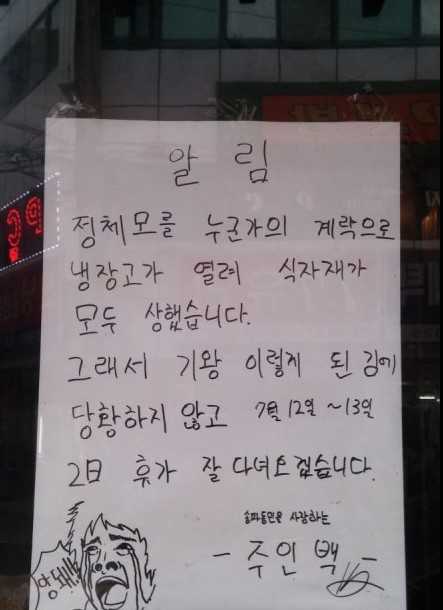 알 림
정체모를 누군가의 계략으로
냉장고가 열려 식자재가
모두 상했습니다.
그래서 기왕 이렇게 된 김에
당황하지 않고 7월 12일 ~13일
2日 휴가 잘 다녀오겠습니다.
송파동민을 사랑하는
- 주인 백 -
안돼!!